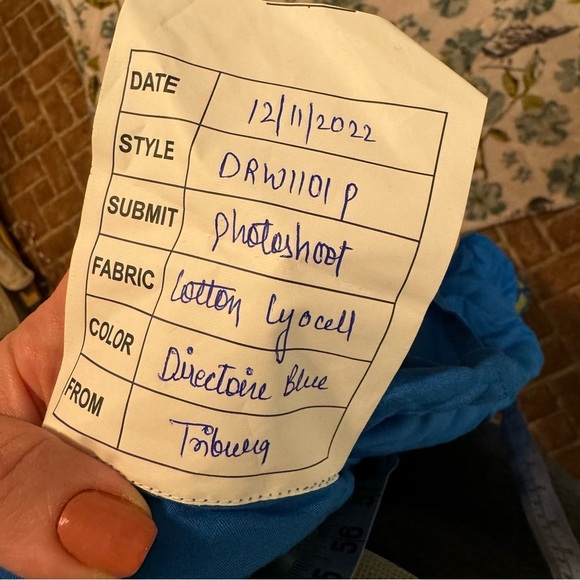 DATE 12/11/2022
STYLE DRW1101P
SUBMIT Photoshoot
FABRIC Cotton Lyocell
COLOR Directoire Blue
FROM Triburg
56